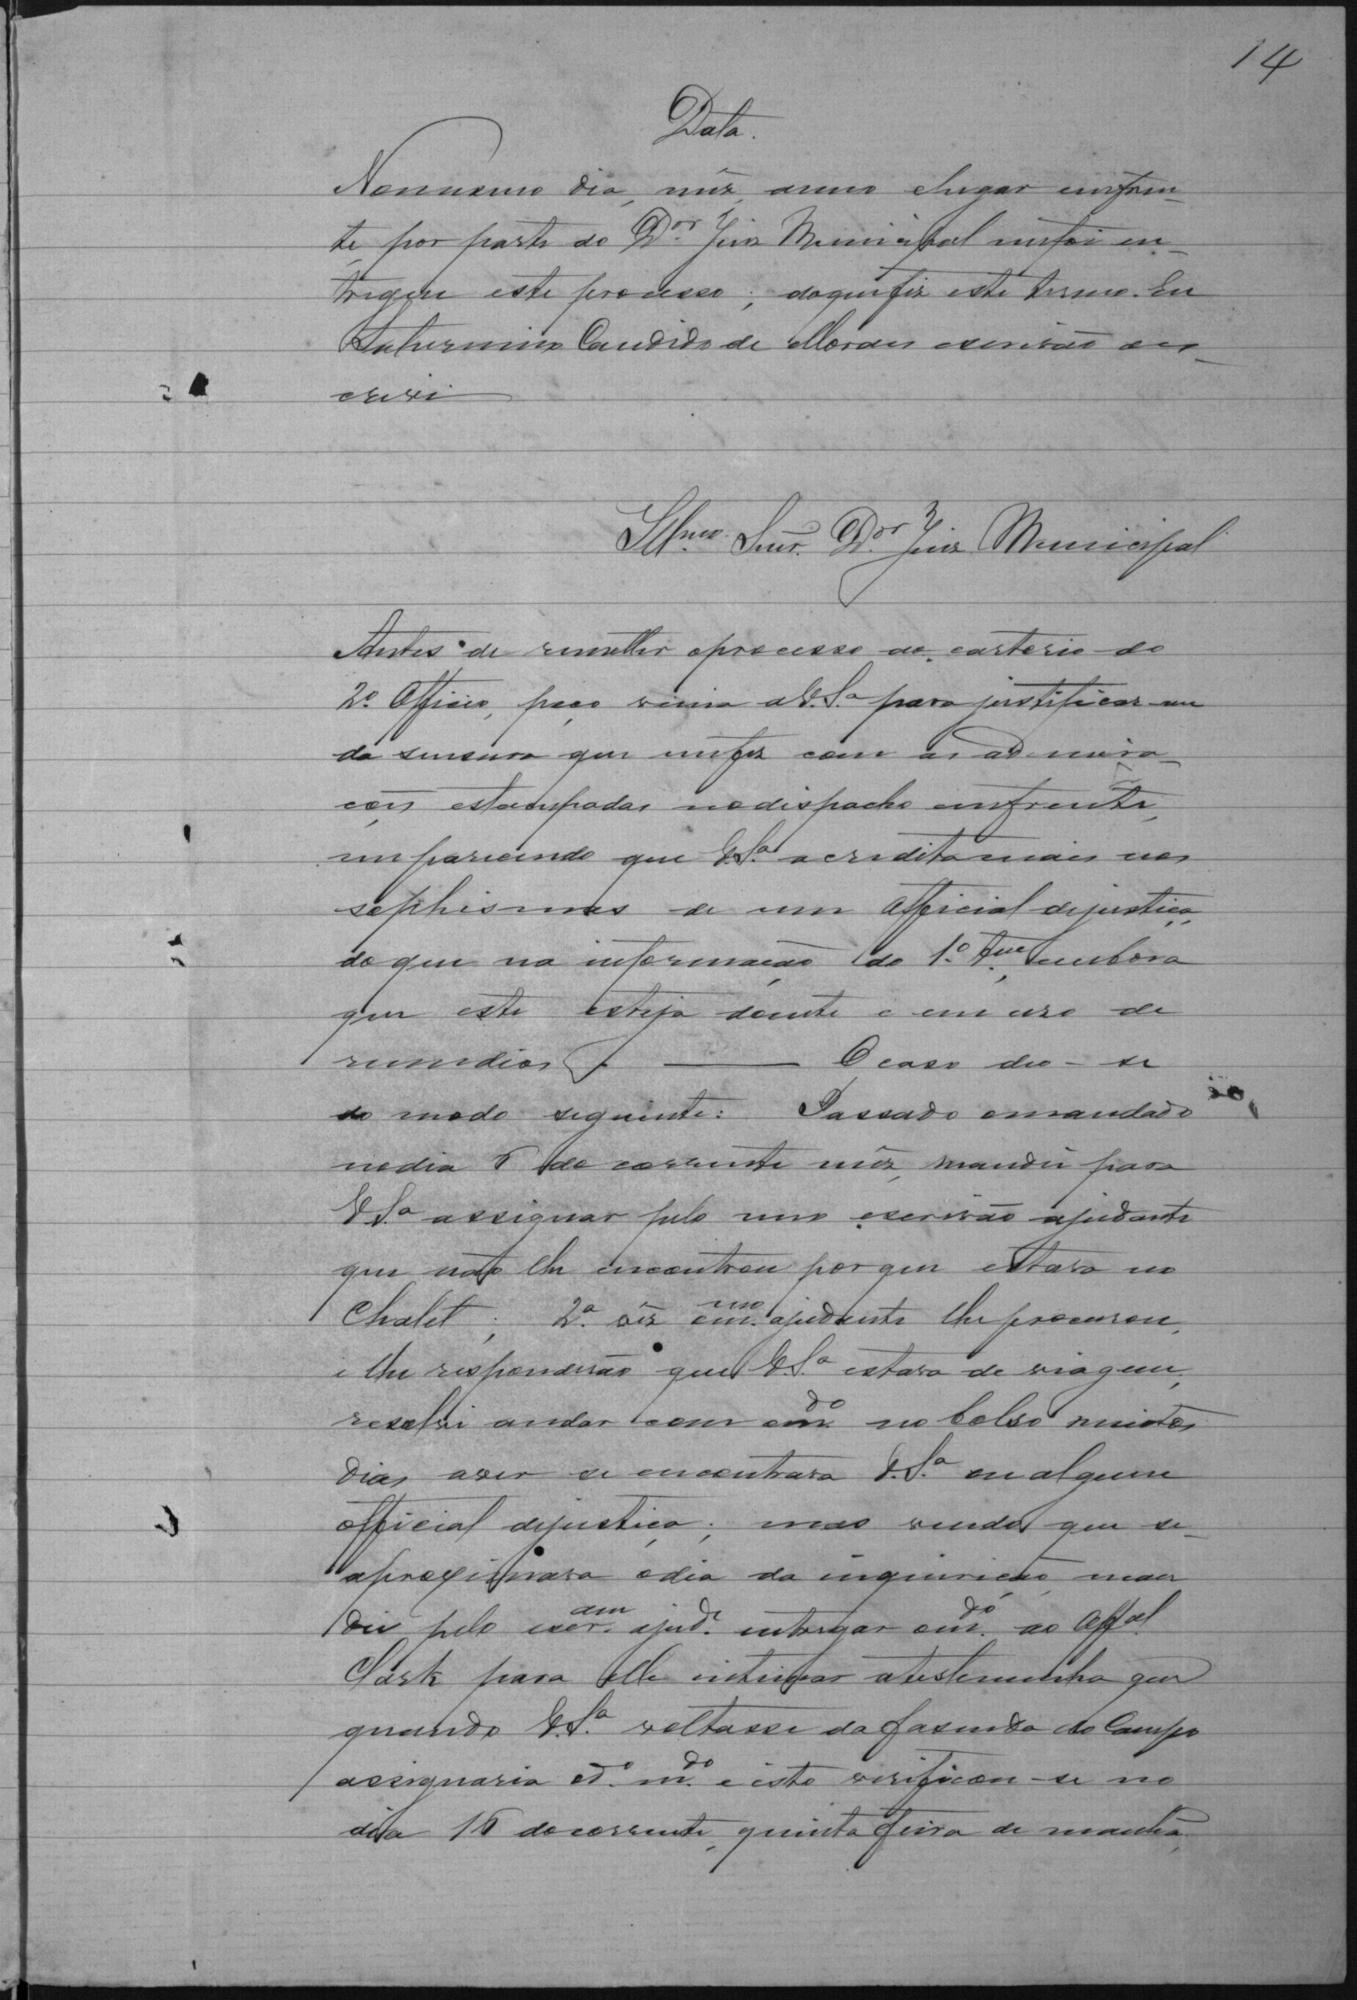 14
Data.
No mesmo dia, mêz, anno e lugar emfren-
te, por parte do D.or Juiz Municipal me foi en-
tregue este processo; do que fiz este termo. Eu
Saturnino Candido de Moraes escrivão o es-
crevi
Ill.mo Senr. D.or Juiz Municipal
Antes de remetter o processo ao cartorio do
2.o Officio, peço venia a V.S.a para justificar-me
da sensura que me fez com as admira-
ções estampadas no dispacho emfrente,
me parecendo que V.S.a acredita mais nos
sophismas de um Official de justiça,
do que na informação do 1.o, embora
que este esteja doente e em uso de
remedios. — O caso deu-se
do modo seguinte: Passado o mandado
no dia 6 do corrente mêz, mandei para
V.S.a assignar pelo meo escrivão ajudante
que não lhe encontrou por que estava no
Chalet; 2.a vêz o m.mo ajudante lhe procurou,
e lhe responderão que V.S.a estava de viagem,
resolvi andar com o m.do no bolso muitos
dias a ver se encontrava V.S.a ou algum
official de justiça; mas vendo que se
aproximava o dia da inquirição, man
dei pelo escr.am ajud.e entregar o m.do ao Off.al
Clark para elle intimar a testemunha que
quando V.S.a voltasse da fasenda do Campo
assignaria o d.o m.do e isto verificou-se no
dia 16 do corrente, quinta feira de manhã,